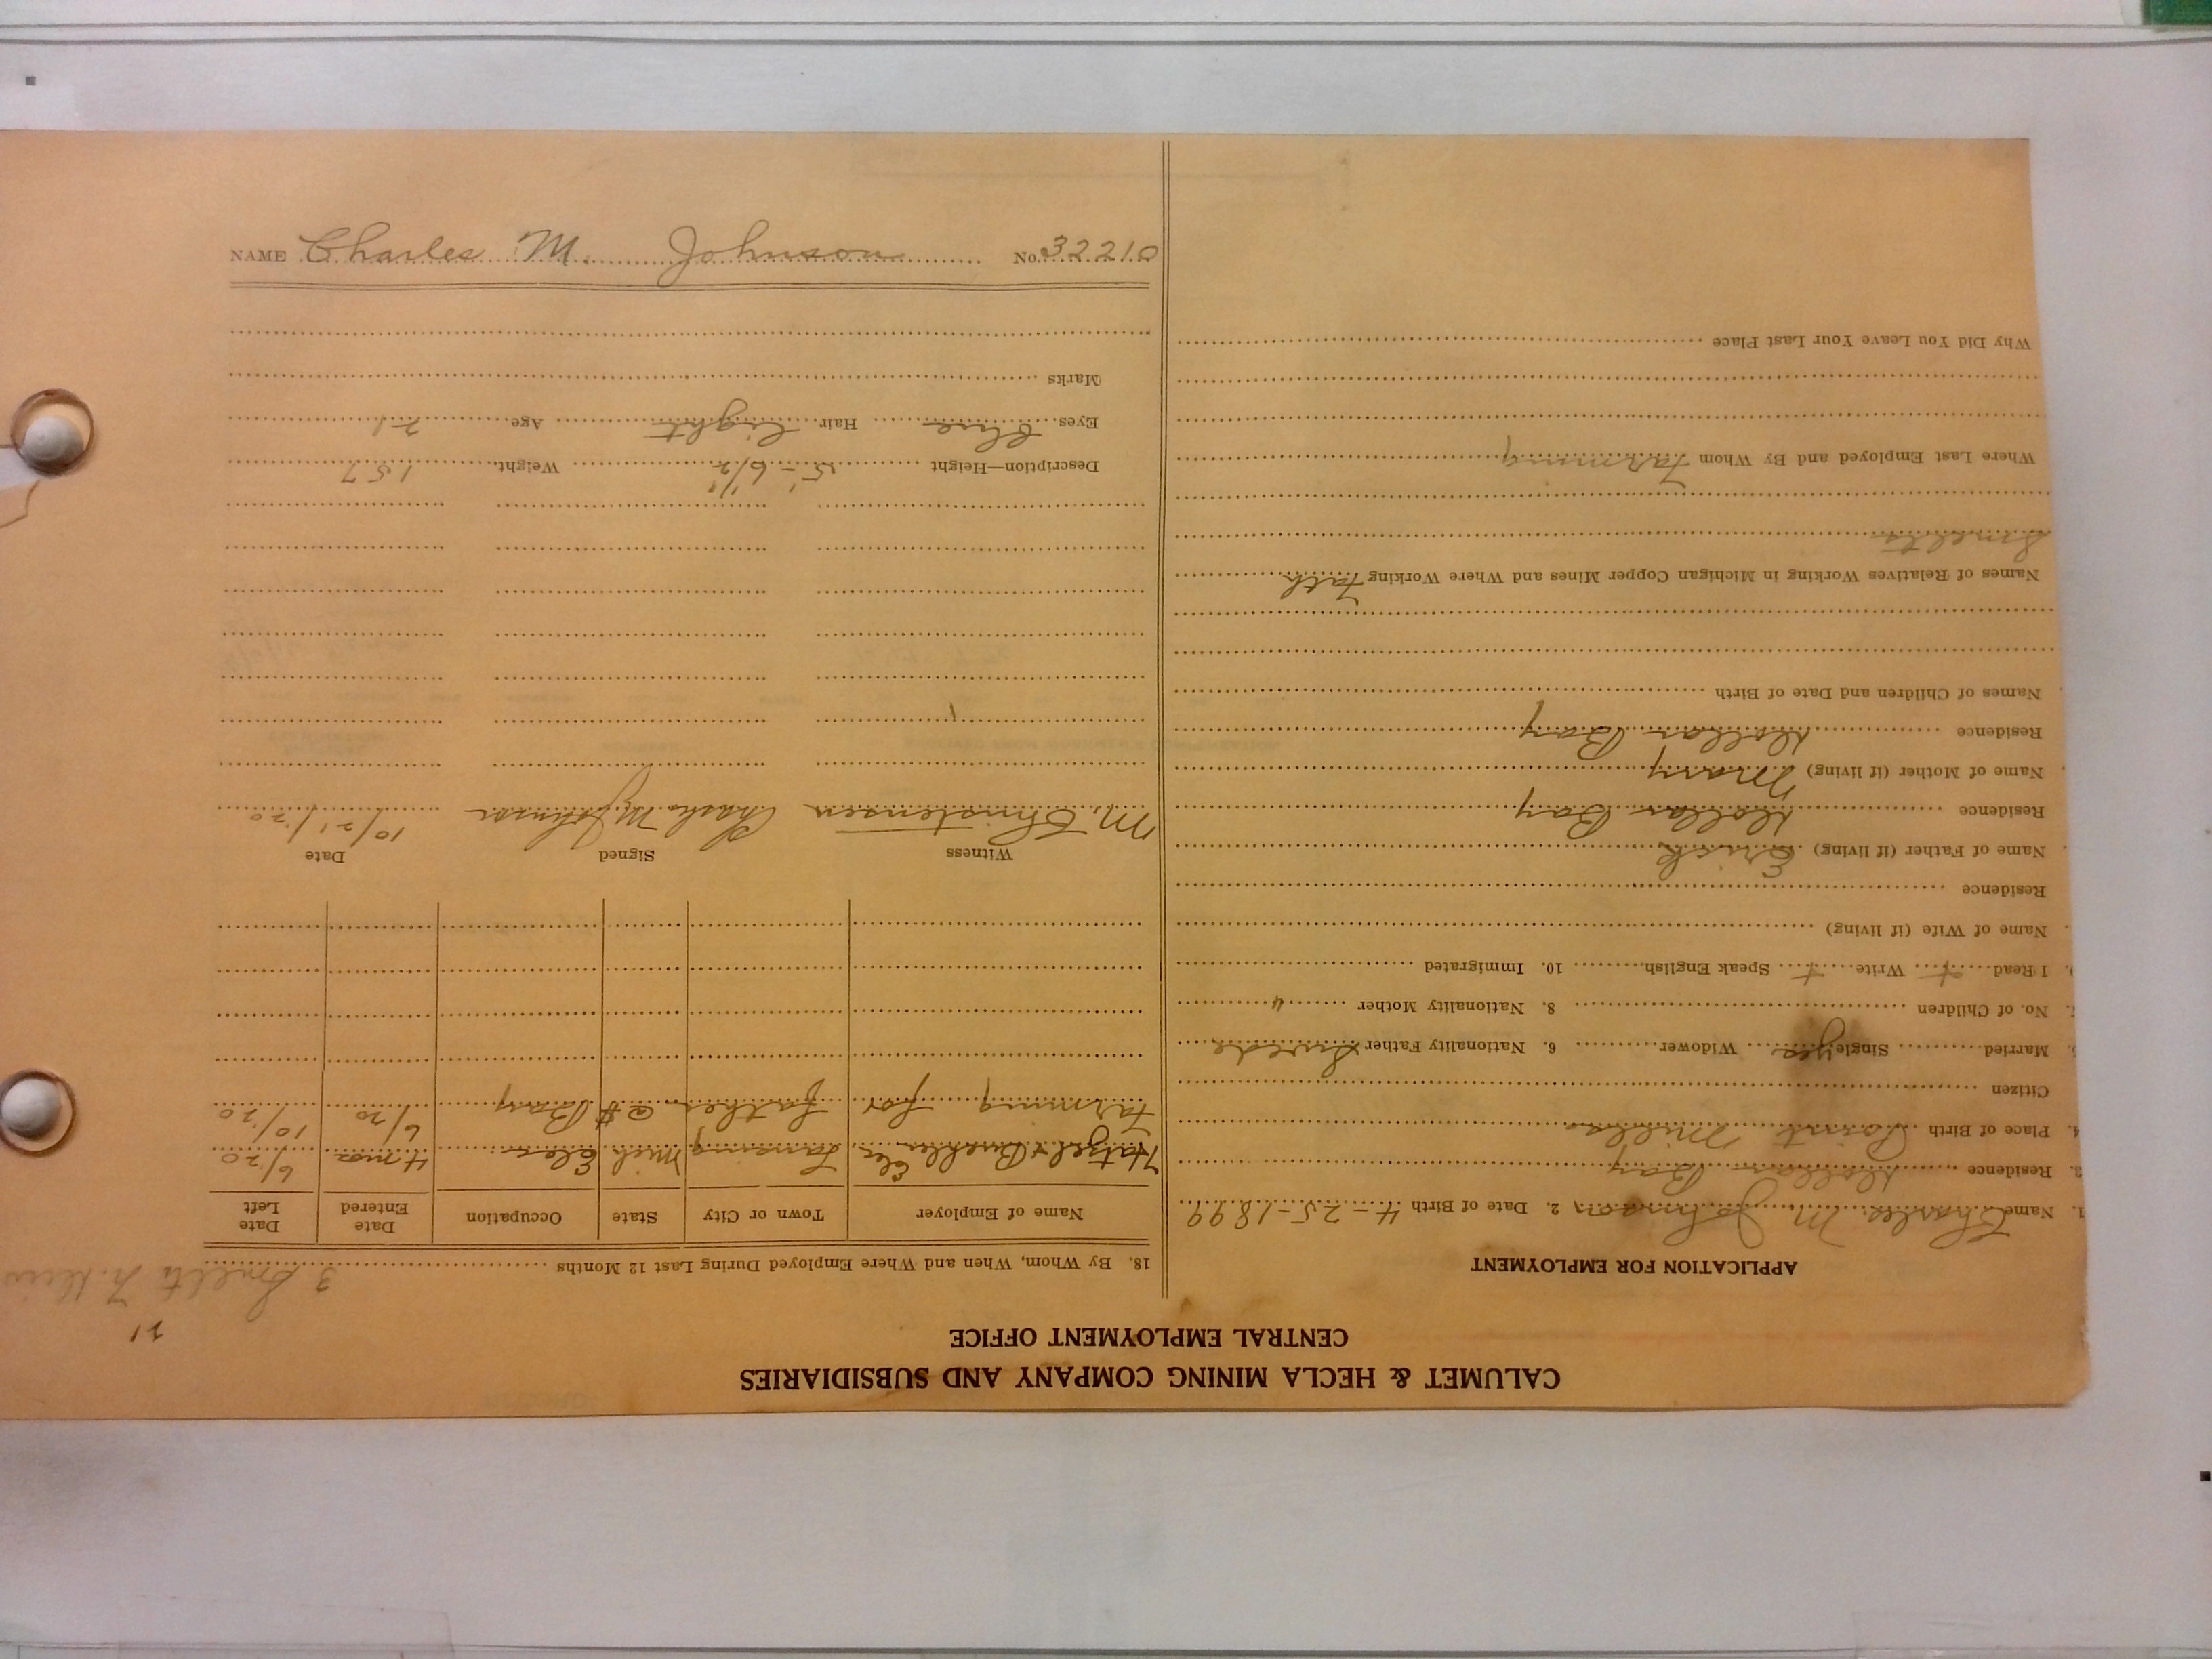 CALUMET & HECLA MINING COMPANY AND SUBSIDIARIES
CENTRAL EMPLOYMENT OFFICE
APPLICATION FOR EMPLOYMENT
1. Name Charles M. Johnson 2. Date of Birth 4-25-1899
3. Residence Dollar Bay
4. Place of Birth Point Mills
Citizen
5. Married Single yes Widower 6. Nationality Father Swede
7. No. of Children 8. Nationality Mother "
9. I Read + Write + Speak English 10. Immigrated
Name of Wife (if living)
Residence
Name of Father (if living) Erick
Residence Dollar Bay
Name of Mother (if living) Mary
Residence Dollar Bay
Names of Children and Date of Birth
Names of Relatives Working in Michigan Copper Mines and Where Working Fath
Smelts
Where Last Employed and By Whom Farming
Why Did You Leave Your Last Place
21
3 Smelts
18. By Whom, When and Where Employed During Last 12 Months
Name of Employer Town or City State Occupation Date Entered Date Left
Hatzel & Buehler Elec Lansing Mich Elec 4 mos 6/20
Farming for father @ $ Bay 6/20 10/20
Witness Signed Date
M. Christensen Charles M Johnson 10/21/20
Description—Height 5'-6 1/2" Weight 157
Eyes blue Hair light Age 21
Marks
NAME Charles M. Johnson No. 32210